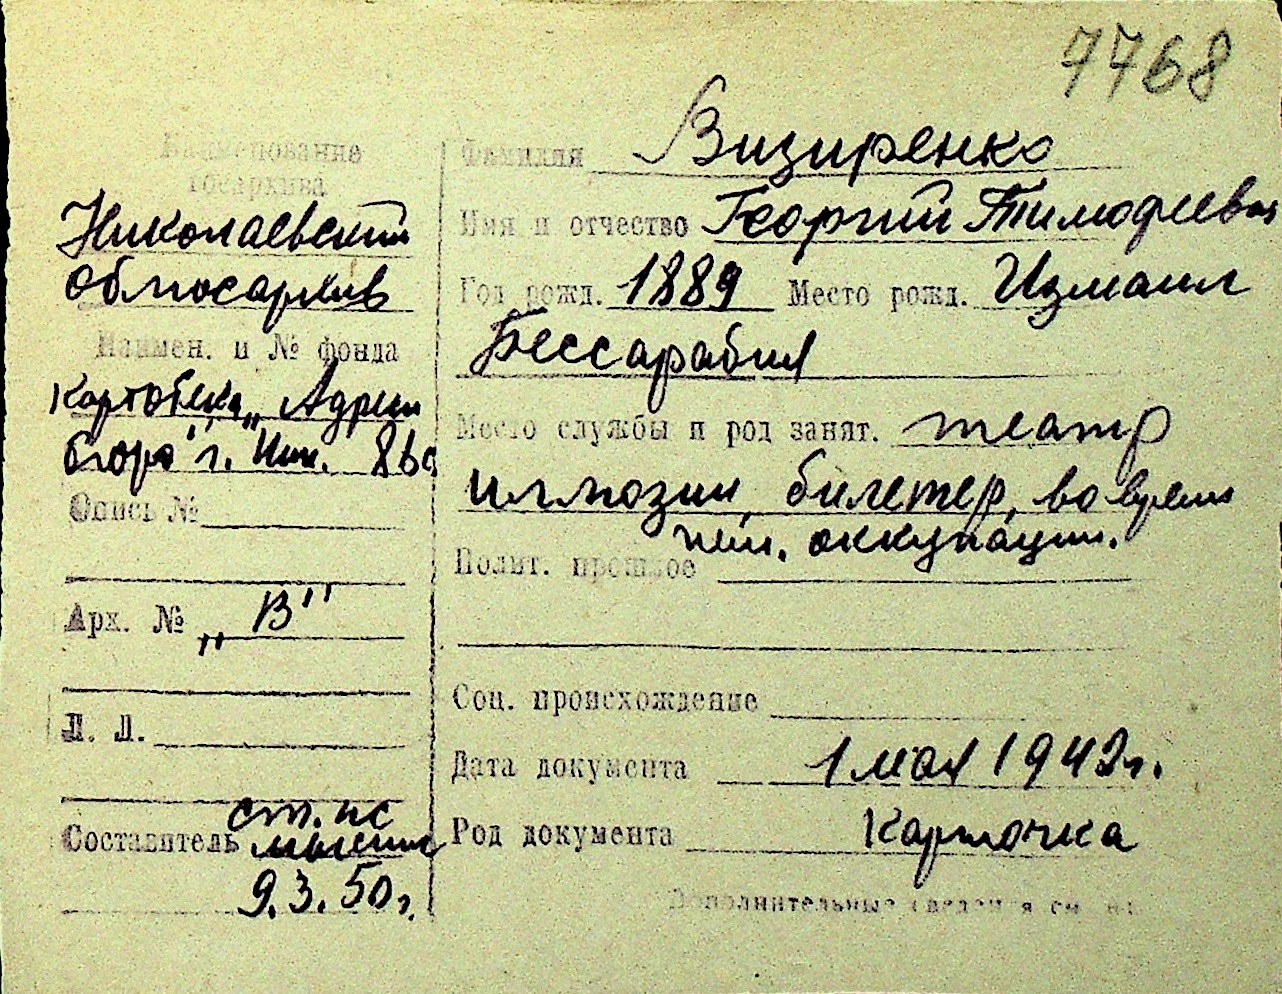 7768
Наименование
госархива
Николаевский
облгосархив
Наимен. и № фонда
Картотека „Адресн
бюро" г. Ник.
Опись №
Арх. № „В"
Л. Л.
Составитель ст. нс
9.3.50г.
Фамилия Визиренко
Имя и отчество Георгий Тимофеевич
Год рожд. 1889 Место рожд. Измаил
Бессарабия
Место службы и род занят. театр
иллюзии, билетер, во время
нем. оккупации.
Полит. прошлое
Соц. происхождение
Дата документа 1 мая 1942г.
Род документа Карточка
Дополнительные сведения см. на